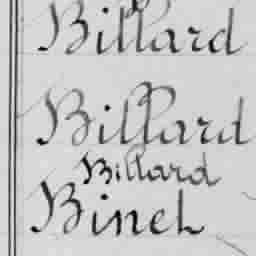 Billard
Billard
Billard
Binet